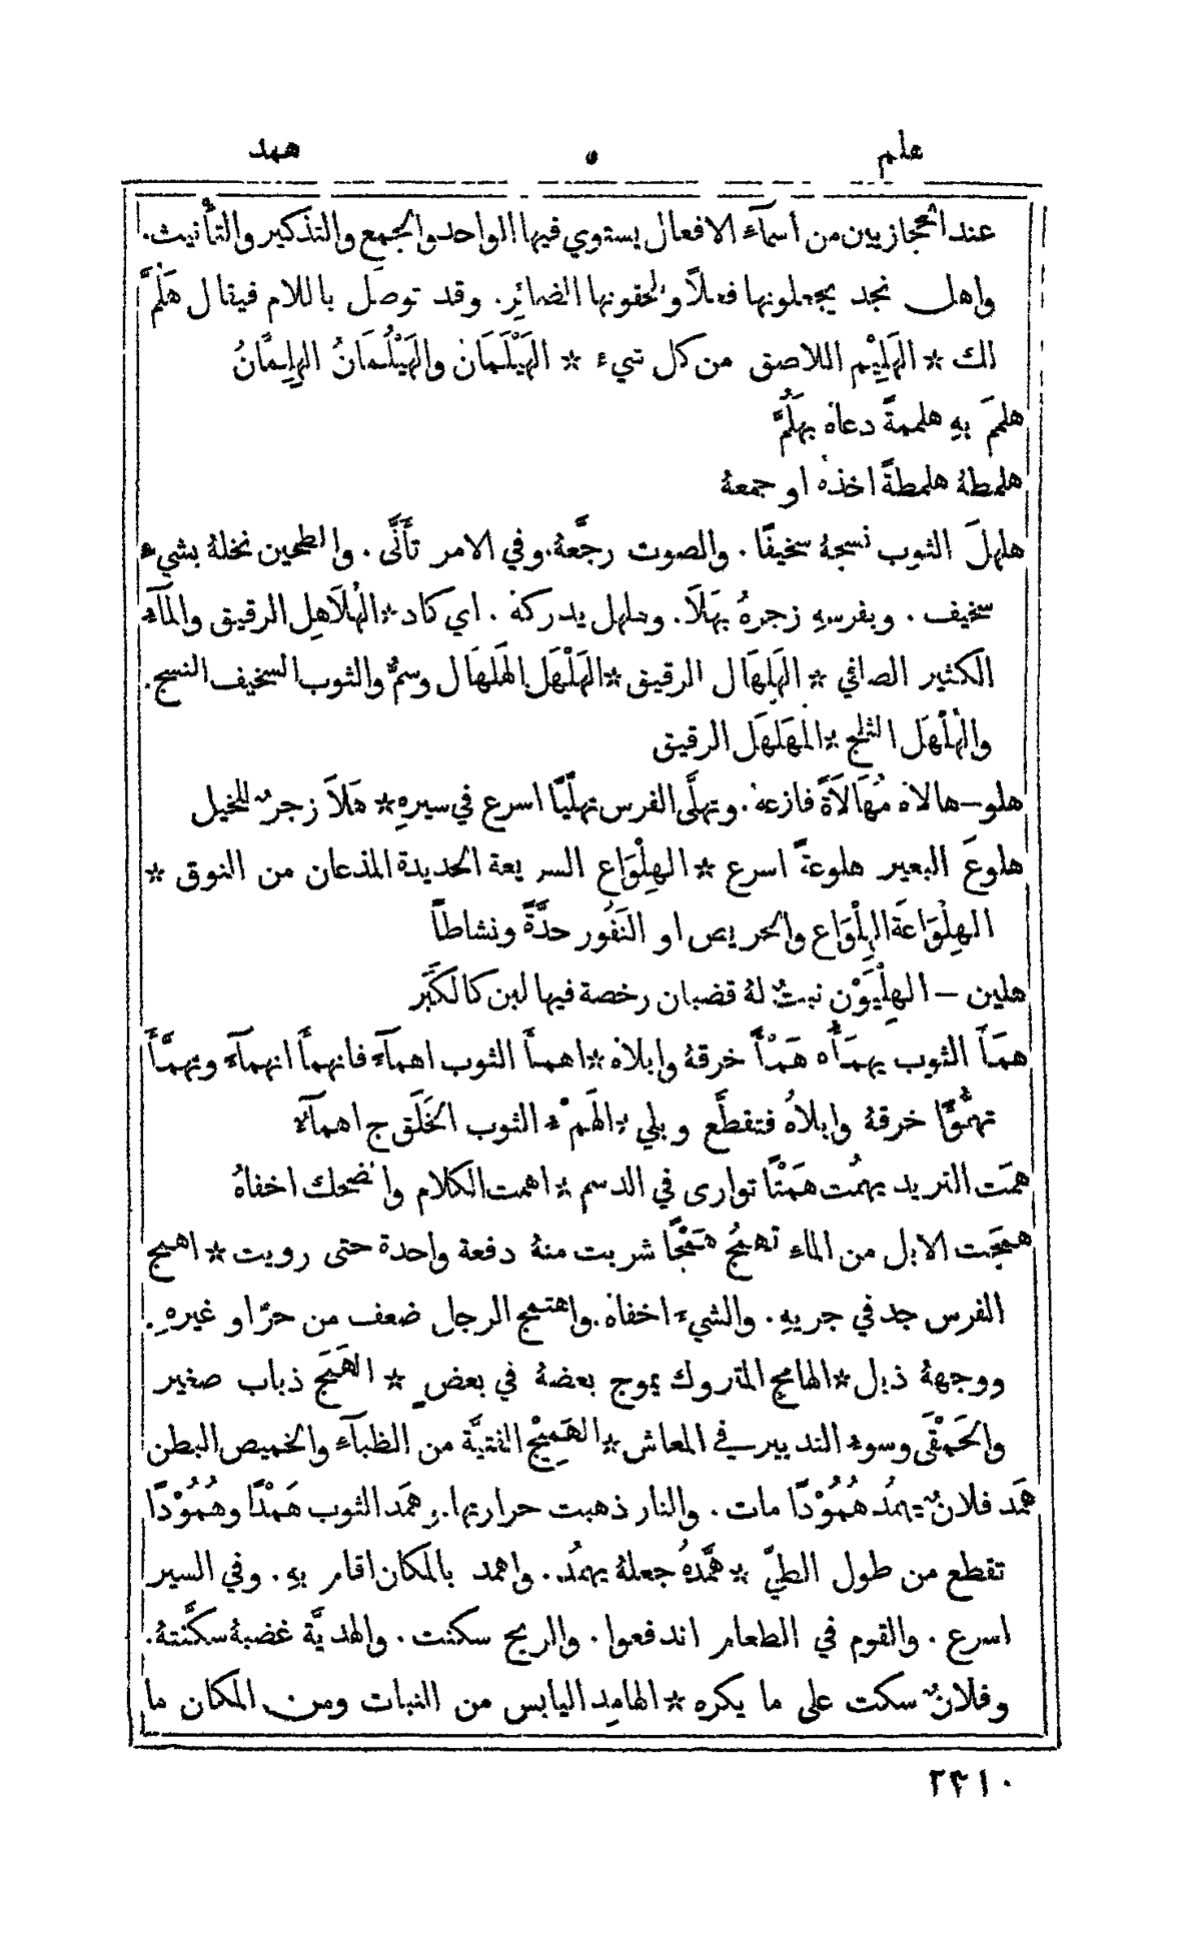 هلم ٥ همد
عند الحجازيين من اسمآء الافعال يستوي فيها الواحد والجمع والتذكير والتأنيث.
واهل نجد يجعلونها فعلاً ويلحقونها الضمائر. وقد توصل باللام فيقال هَلُمَّ
لك * الهَلِيْم اللاصق من كل شيء * الهَيْلَمَان والهَيْلُمَانُ الهِلِمَّانُ
هلممَ بهِ هلممةً دعاهُ بهَلُمَّ
هلمطهُ هلمطةً اخذهُ او جمعهُ
هلهلَ الثوب نسجهُ سخيفًا. والصوت رجَّعهُ. وفي الامر تأَنَّى. والطحين نخلهُ بشيء
سخيف. وبفرسهِ زجرهُ بهَلاَ. وهلهل يدركهُ. اي كاد * الهُلاَهِل الرقيق والمآء
الكثير الصافي * الهَلهَال الرقيق * الهَلْهَل الهَلهَال وسمٌّ والثوب السخيف النسج.
والهُلْهُل الثلج * المُهَلهَل الرقيق
هلو - هالاهُ مُهَالاَةً فازعهُ. وتهلَّى الفرس تهلّيًا اسرع في سيرهِ * هَلاَ زجرٌ للخيل
هلوعَ البعير هلوعةً اسرع * الهِلْوَاع السريعة الحديدة المذعان من النوق *
الهِلْوَاعَة الهِلْوَاع والحريص او النَفُور حدَّةً ونشاطاً
هلين - الهِلْيَوْن نبتٌ لهُ قضبان رخصة فيها لبن كالكَبَر
همَأَ الثوب يهمَأُه هَمْأً خرقهُ وابلاهُ * اهمأَ الثوب اهمآءً فانهمأَ انهمآءً وتهمَّأَ
تهمُّؤًا خرقهُ وابلاهُ فتقطَّع وبلي * الهِمْء الثوب الخَلَق ج اهمآء
همَت الثريد يهمُت هَمْتًا توارى في الدسم * اهمت الكلام والضحك اخفاهُ
همَجَت الابل من الماء تهمُجُ هَمْجًا شربت منهُ دفعة واحدة حتى رويت * اهمج
الفرس جد في جريهِ. والشيء اخفاهُ. واهتمج الرجل ضعف من حرٍّ او غيرهِ.
ووجههُ ذبل * الهامِج المتروك يموج بعضهُ في بعضٍ * الهَمَج ذباب صغير
والحَمْقَى وسوء التدبير في المعاش * الهَمِيْج الفتيَّة من الظبآء والخميص البطن
همَد فلانٌ يهمُد هُمُوْدًا مات. والنار ذهبت حرارتها. وهمَد الثوب هَمْدًا وهُمُوْدًا
تقطع من طول الطيّ * همَّدهُ جعلهُ يهمُد. واهمد بالمكان اقام بهِ. وفي السير
اسرع. والقوم في الطعام اندفعوا. والريح سكنت. والهديَّة غضبهُ سكَّنتهُ.
وفلانٌ سكت على ما يكره * الهامِد اليابس من النبات ومن المكان ما